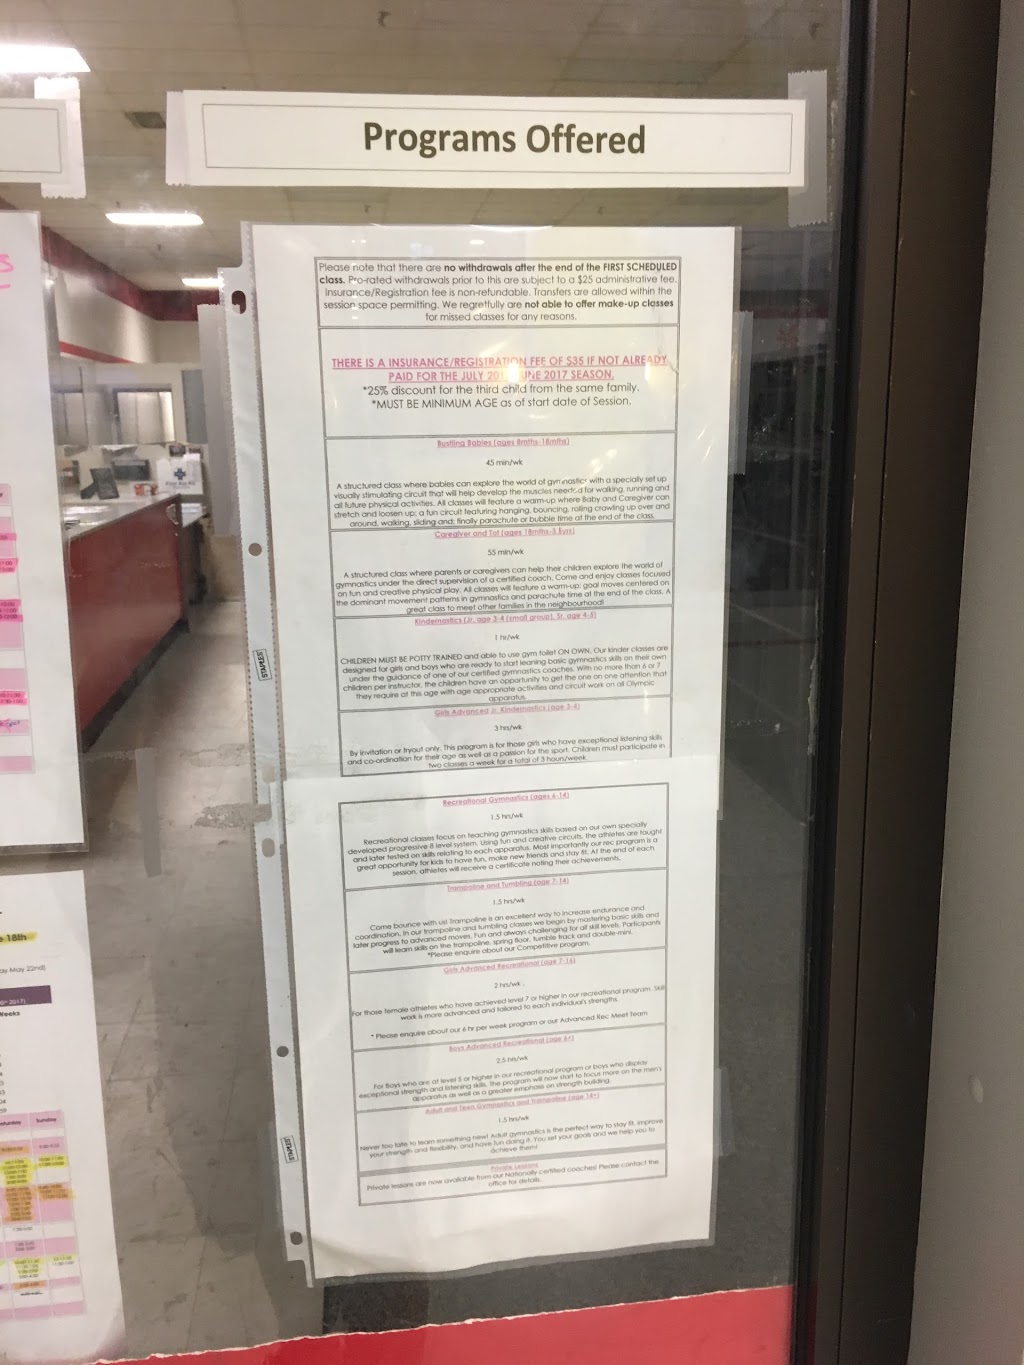 Programs Offered
Please note that there are no withdrawals after the end of the FIRST SCHEDULED
class. Pro-rated withdrawals prior to this are subject to a $25 administrative fee.
Insurance/Registration fee is non-refundable. Transfers are allowed within the
session space permitting. We regretfully are not able to offer make-up classes
for missed classes for any reasons.
THERE IS A INSURANCE/REGISTRATION FEE OF $35 IF NOT ALREADY
PAID FOR THE JULY 2017 SEASON.
*25% discount for the third child from the same family.
*MUST BE MINIMUM AGE as of start date of Session.
Bustling Babies (ages 8mths-18mths)
45 min/wk
A structured class where babies can explore the world of gymnastics with a specially set up
visually stimulating circuit that will help develop the muscles needed for walking, running and
all future physical activities. All classes will feature a warm-up where Baby and Caregiver can
stretch and loosen up; a fun circuit featuring hanging, bouncing, rolling crawling up over and
around, walking, sliding and; finally parachute or bubble time at the end of the class.
Caregiver and Tot (ages 18mths-3.5yrs)
55 min/wk
A structured class where parents or caregivers can help their children explore the world of
gymnastics under the direct supervision of a certified coach. Come and enjoy classes focused
on fun and creative physical play. All classes will feature a warm-up; goal moves centered on
the dominant movement patterns in gymnastics and parachute time at the end of the class. A
great class to meet other families in the neighbourhood!
Kindernastics (Jr. age 3-4 (small group), Sr. age 4-5)
1 hr/wk
CHILDREN MUST BE POTTY TRAINED and able to use gym toilet ON OWN. Our kinder classes are
designed for girls and boys who are ready to start leaning basic gymnastics skills on their own
under the guidance of one of our certified gymnastics coaches. With no more than 6 or 7
children per instructor, the children have an opportunity to get the one on one attention that
they require at this age with age appropriate activities and circuit work on all Olympic
apparatus.
Girls Advanced Jr. Kindernastics (age 3-4)
3 hrs/wk
By invitation or tryout only. This program is for those girls who have exceptional listening skills
and co-ordination for their age as well as a passion for the sport. Children must participate in
two classes a week for a total of 3 hours/week.
Recreational Gymnastics (ages 6-14)
1.5 hrs/wk
Recreational classes focus on teaching gymnastics skills based on our own specially
developed progressive 8 level system. Using fun and creative circuits, the athletes are taught
and later tested on skills relating to each apparatus. Most importantly our rec program is a
great opportunity for kids to have fun, make new friends and stay fit. At the end of each
session, athletes will receive a certificate noting their achievements.
Trampoline and Tumbling (age 7-14)
1.5 hrs/wk
Come bounce with us! Trampoline is an excellent way to increase endurance and
coordination. In our trampoline and tumbling classes we begin by mastering basic skills and
later progress to advanced moves. Fun and always challenging for all skill levels. Participants
will learn skills on the trampoline, spring floor, tumble track and double-mini.
*Please enquire about our Competitive program.
Girls Advanced Recreational (age 7-16)
2 hrs/wk
For those female athletes who have achieved level 7 or higher in our recreational program. Skill
work is more advanced and tailored to each individual's strengths.
* Please enquire about our 6 hr per week program or our Advanced Rec Meet team
Boys Advanced Recreational (age 6+)
2.5 hrs/wk
For Boys who are at level 5 or higher in our recreational program or boys who display
exceptional strength and listening skills. The program will now start to focus more on the men's
apparatus as well as a greater emphasis on strength building.
Adult and Teen Gymnastics and Trampoline (age 14+)
1.5 hrs/wk
Never too late to learn something new! Adult gymnastics is the perfect way to stay fit, improve
your strength and flexibility, and have fun doing it. You set your goals and we help you to
achieve them!
Private Lessons
Private lessons are now available from our Nationally certified coaches! Please contact the
office for details.
STAPLES
STAPLES
18th
ay May 22nd)
2017)
Weeks
Sunday